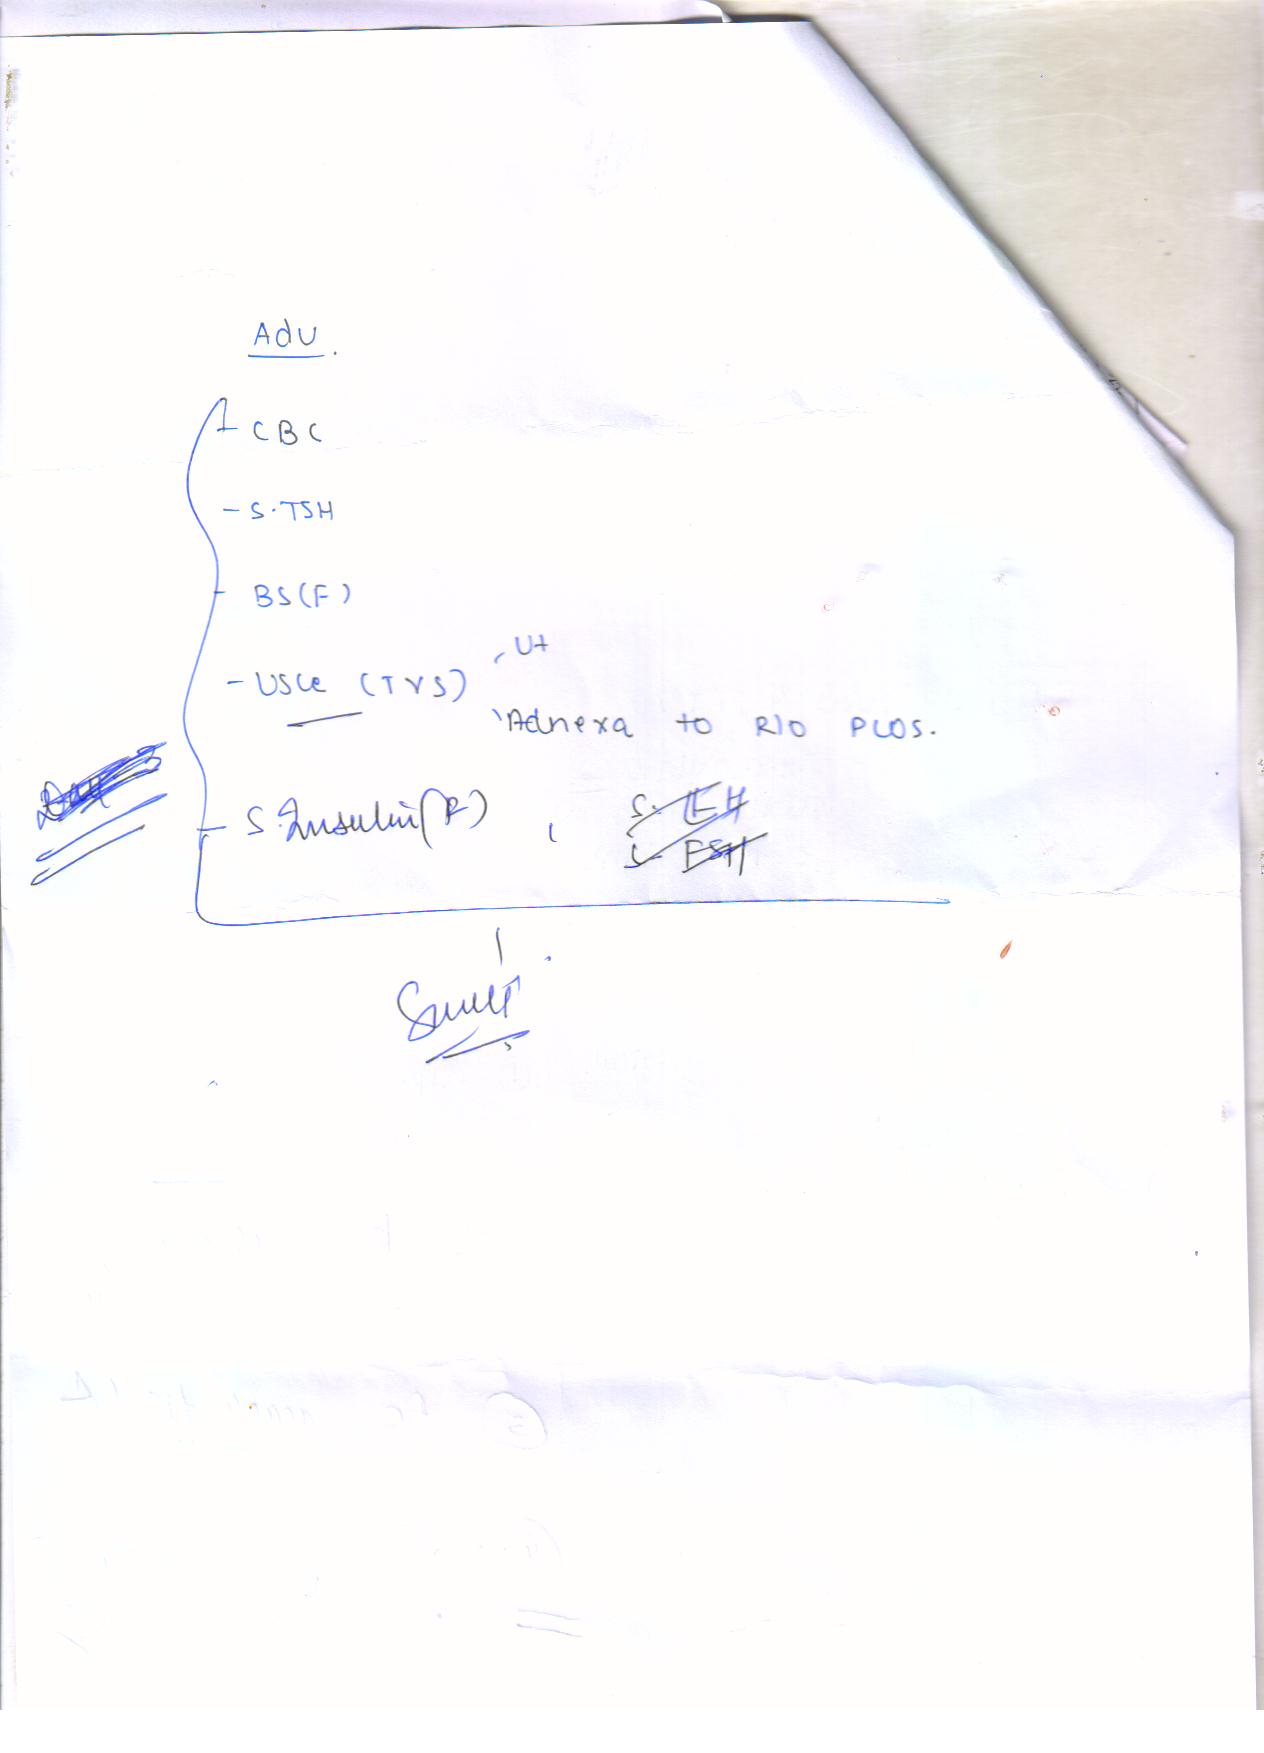 Adv.
- CBC
- S.TSH
- BS(F)
- USG (TVS) Ut
Adnexa to R/O PCOS.
- S.Insulin(F), S. LH
S. FSH